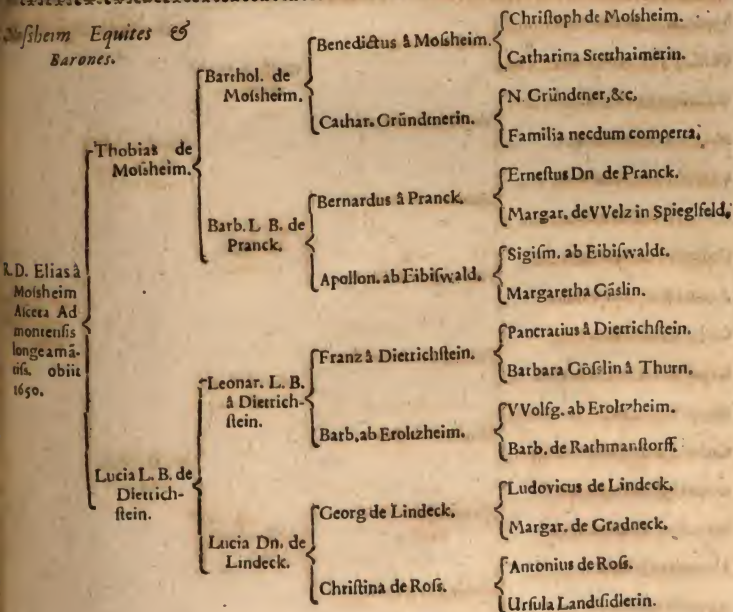 Moſsheim Equites &
Barones.
R. D. Elias à
Moſsheim
Aſceta Ad
montenſis
longe amā-
tiſs. obiit
1650.
Thobias de
Moſsheim.
Lucia L. B. de
Dietrich-
ſtein.
Barthol. de
Moſsheim.
Barb. L B. de
Pranck.
Leonar. L. B.
â Dietrich-
ſtein.
Lucia Dn. de
Lindeck.
Benedictus â Moſsheim.
Cathar. Gründtnerin.
Bernardus â Pranck.
Apollon. ab Eibiſwald.
Franz â Dietrichſtein.
Barb. ab Eroltzheim.
Georg de Lindeck.
Chriſtina de Roſs.
Chriſtoph de Moſsheim.
Catharina Stetthaimerin.
N. Gründtner, &c,
Familia necdum comperta.
Erneſtus Dn de Pranck.
Margar. de VVelz in Spieglfeld.
Sigiſm. ab Eibiſwaldt.
Margaretha Gäslin.
Pancratius â Dietrichſtein.
Barbara Göſslin â Thurn.
VVolfg. ab Eroltzheim.
Barb. de Rathmanſtorff.
Ludovicus de Lindeck.
Margar. de Gradneck.
Antonius de Roſs.
Urſula Landtſidlerin.